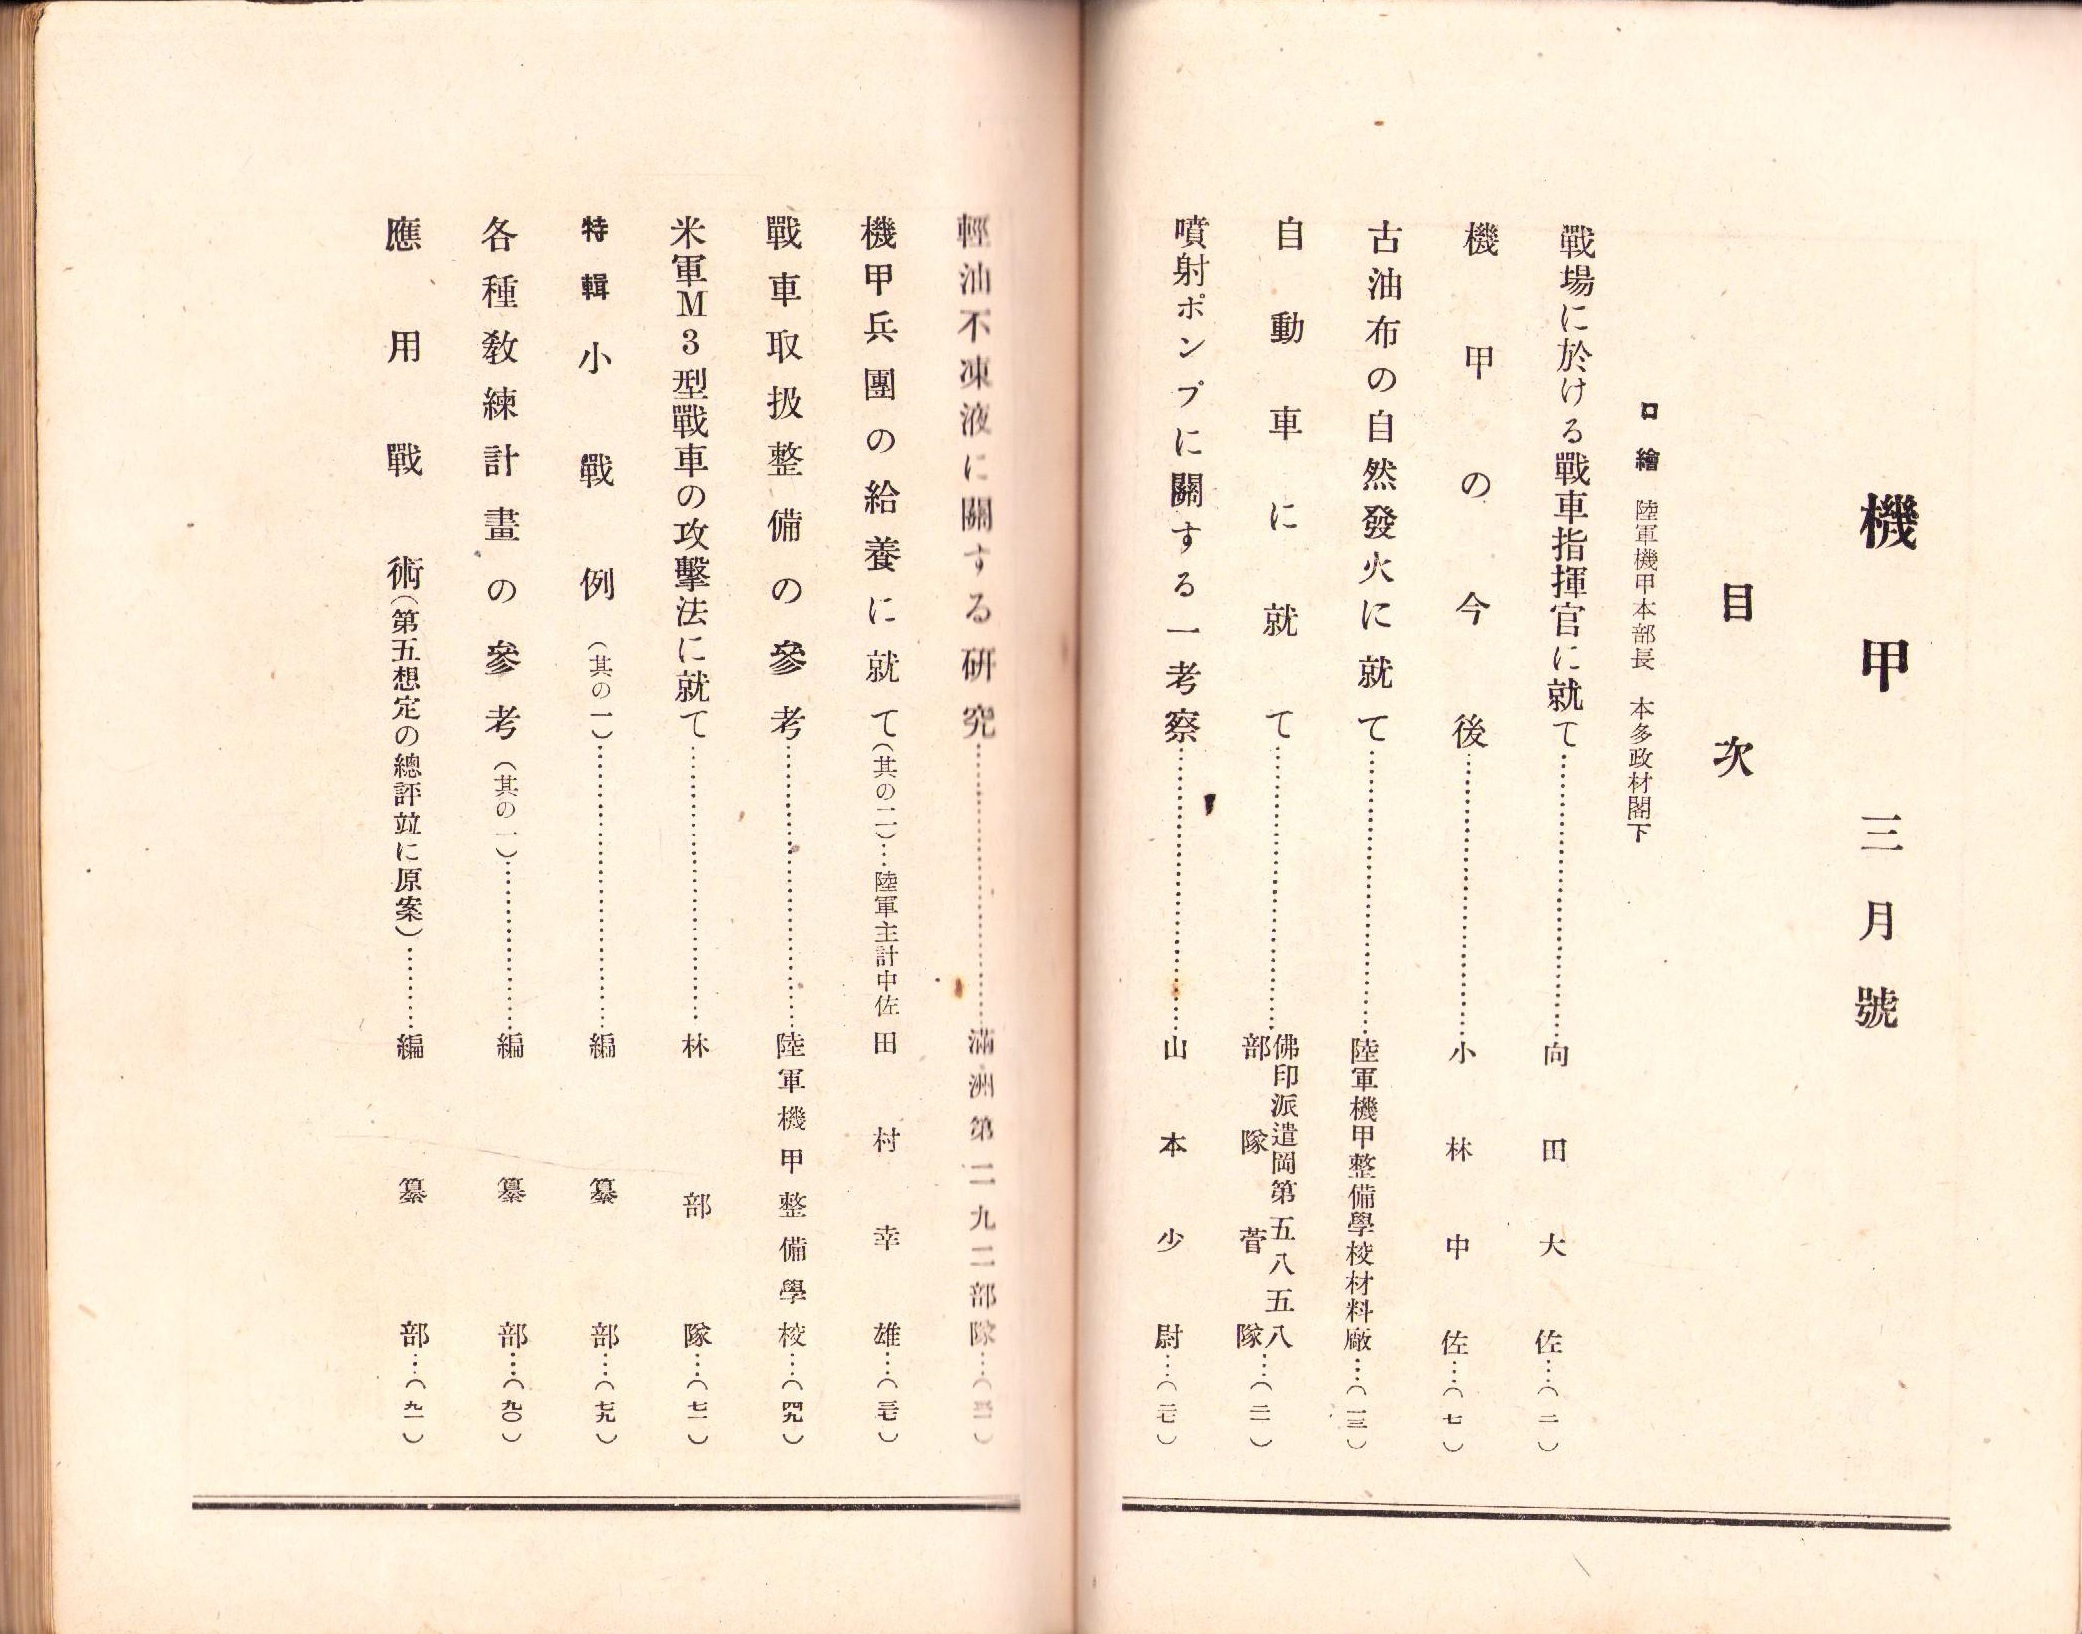 機甲 三月號
目次
口繪 陸軍機甲本部長 本多政材閣下
戰場に於ける戰車指揮官に就て…………向田大佐…(二)
機甲の今後…………小林中佐…(七)
古油布の自然發火に就て…………陸軍機甲整備學校材料廠…(一三)
自動車に就て…………佛印派遣岡第五八五八部隊菅隊…(二一)
噴射ポンプに關する一考察…………山本少尉…(二七)
輕油不凍液に關する研究…………滿洲第二九二部隊…
機甲兵團の給養に就て(其の二)…陸軍主計中佐 田村幸雄…(三七)
戰車取扱整備の參考…………陸軍機甲整備學校…(四九)
米軍M3型戰車の攻擊法に就て…………林部隊…(七一)
特輯 小戰例(其の一)…………編纂部…(七九)
各種敎練計畫の參考(其の一)…………編纂部…(九〇)
應用戰術(第五想定の總評竝に原案)…………編纂部…(九一)